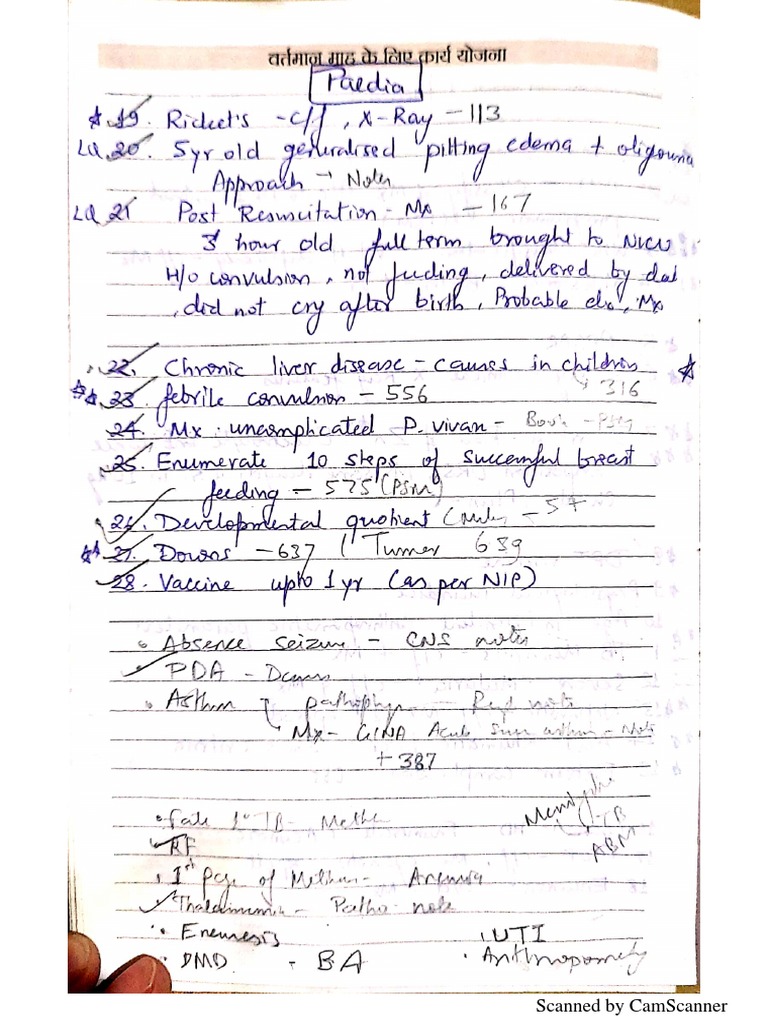 वर्तमान माह के लिए कार्य योजना
Paedia
19. Ricket's - c/f, X-Ray - 113
LQ 20. 5yr old generalised pitting edema + oligouria
Approach → Notes
LQ 21 Post Resuscitation - Mx - 167
3 hour old full term brought to NICU
H/o convulsion, not feeding, delivered by dai
, did not cry after birth, Probable , Mx
22. Chronic liver disease - causes in children
316
23. febrile convulsion - 556
24. Mx uncomplicated P. vivax -
25. Enumerate 10 steps of successful breast
feeding - 575 (PSM)
26. Developmental quotient - 57
27. Downs - 637 / Turner 639
28. Vaccine upto 1 yr (as per NIP)
Absence seizure - CNS notes
PDA -
Asthma pathophy - note
Mx - GINA Acute asthma - Note
+ 387
1° TB -
TB
RF
ABM
1st page of - Anemia
Thalassemia - Patho note
Enuresis
UTI
DMD - BA
Anthropometry
Scanned by CamScanner